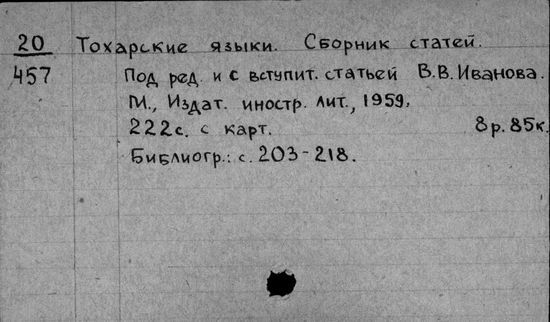 20 Тохарские языки. Сборник статей.
457 Под ред. и с вступит. статьей В.В. Иванова.
М., Издат. иностр. лит., 1959.
222с. с карт. 8р. 85к.
Библиогр.: с. 203-218.